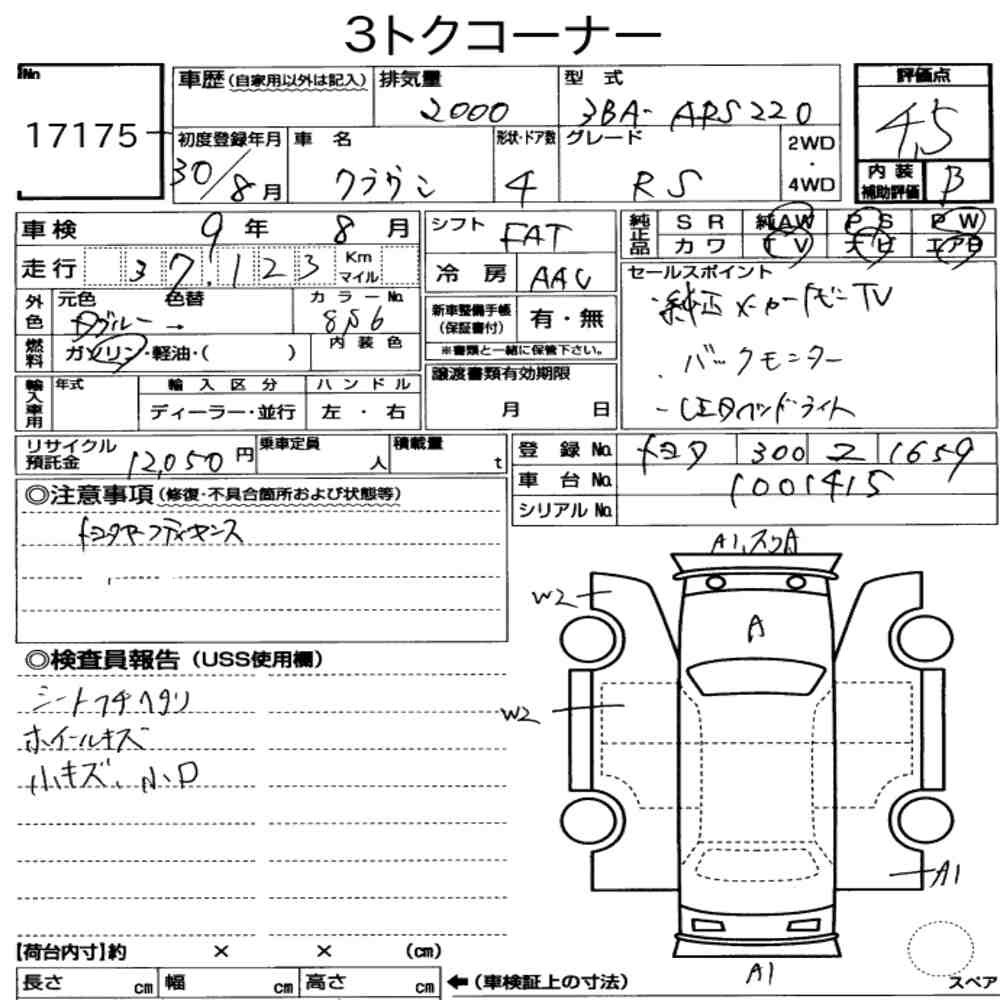 3トクコーナー
No
17175
車歴(自家用以外は記入) 排気量 型 式
2000 3BA- ARS220
評価点
4.5
初度登録年月 車 名 形状・ドア数 グレード
30/8月 クラウン 4 RS
2WD
・
4WD
内 装
補助評価 B
車検 9 年 8 月
シフト FAT
純正品 SR 純AW PS PW
カワ TV ナビ エアB
走行 37,123 Km マイル
冷 房 AAC
セールスポイント
・純正メーカーナビTV
・バックモニター
-LEDヘッドライト
外色 元色 色替 カラーNo.
→
新車整備手帳
(保証書付) 有・無
※書類と一緒に保管下さい。
燃料 ガソリン・軽油・( ) 内装色
譲渡書類有効期限
月 日
輸入車用 年式 輸入区分 ハンドル
ディーラー・並行 左・右
リサイクル
預託金 12,050円 乗車定員 人 積載量 t
登 録 No. トヨタ 300 1659
車 台 No. 1001415
シリアル No.
◎注意事項(修復・不具合箇所および状態等)
A1,スリA
W2
A
◎検査員報告(USS使用欄)
シートフチヘタリ
W2
ホイールキズ
小キズ、小ロ
A1
【荷台内寸】約 × × (cm)
長さ cm 幅 cm 高さ cm
←(車検証上の寸法)
A1
スペア